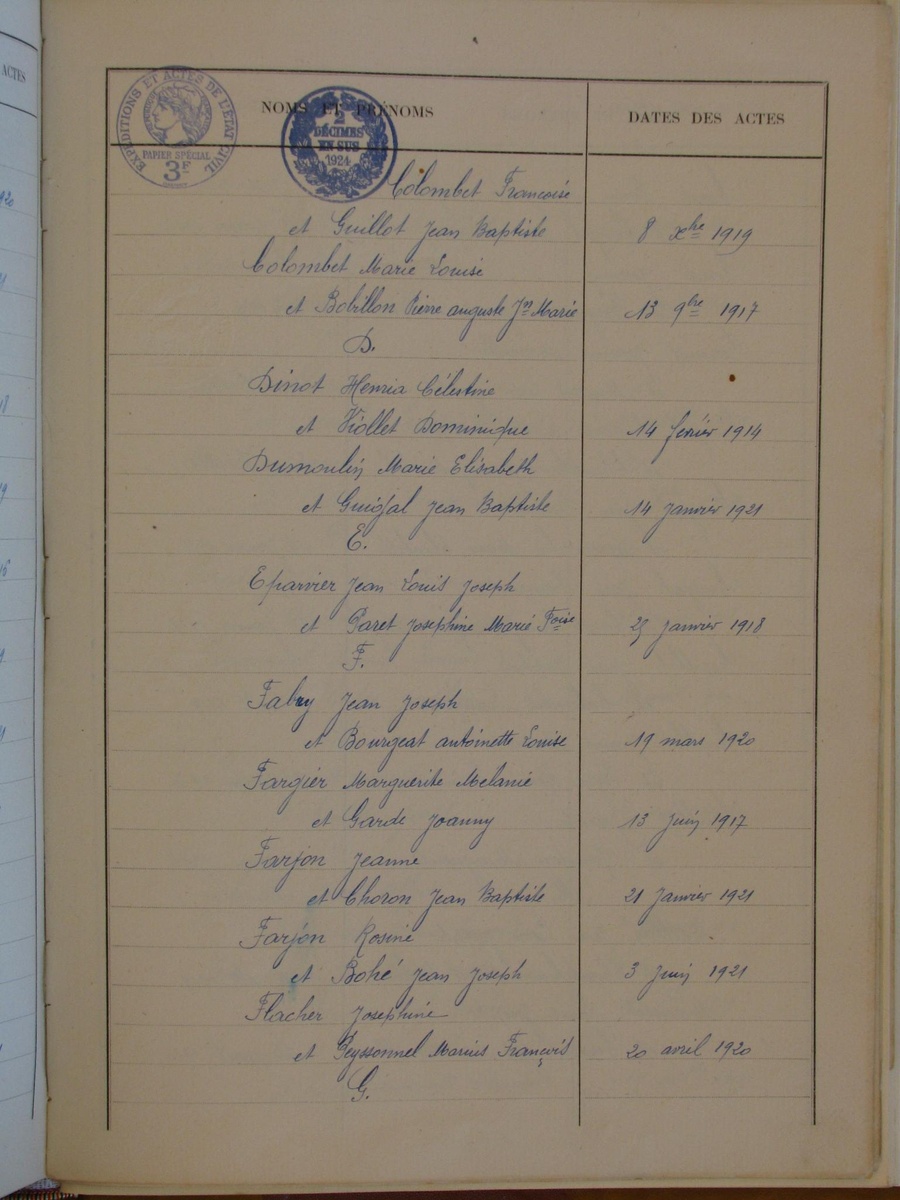 ACTES
EXPÉDITIONS ET ACTES DE L'ÉTAT CIVIL
PAPIER SPÉCIAL
3F
2
DÉCIMES
EN SUS
1924
NOMS ET PRÉNOMS DATES DES ACTES
Colombet Francoise
et Guillot Jean Baptiste 8 xbre 1919
Colombet Marie Louise
et Bobillon Pierre auguste Jn Marie 13 9bre 1917
D.
Dinot Henria Célestine
et Viollet Dominique 14 février 1914
Dumoulin Marie Elisabeth
et Guigal Jean Baptiste 14 Janvier 1921
E.
Eparvier Jean Louis Joseph
et Paret Josephine Marie Foise Janvier 1918
F.
Fabry Jean Joseph
et Bourgeat antoinette Louise 19 mars 1920
Fargier Marguerite Melanie
et Garde Joanny 13 Juin 1917
Farjon Jeanne
et Choron Jean Baptiste 21 Janvier 1921
Farjon Rosine
et Bohé Jean Joseph 3 Juin 1921
Flacher Josephine
et Peyssonnel Marius François 20 avril 1920
G.